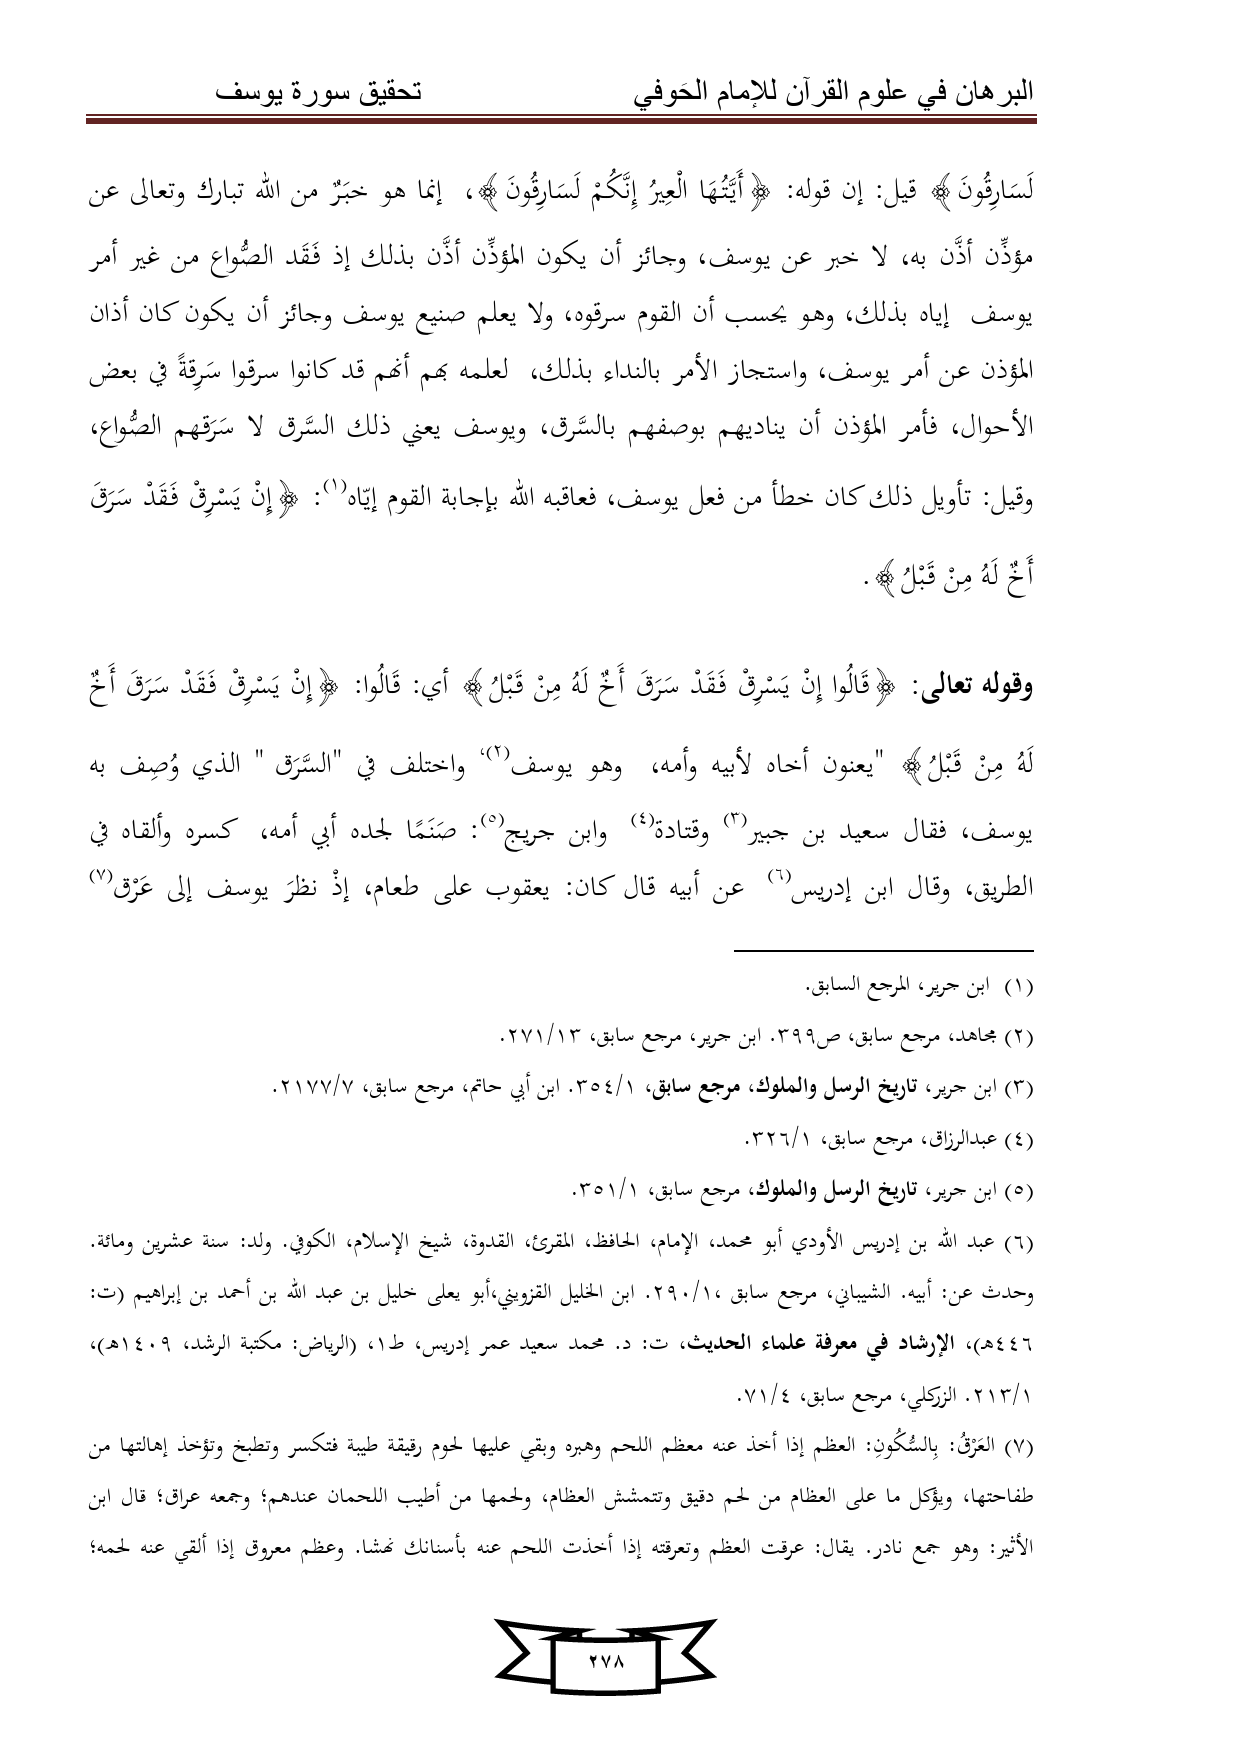 البرهان في علوم القرآن للإمام الحَوفي تحقيق سورة يوسف
لَسَارِقُونَ﴾ قيل: إن قوله: ﴿أَيَّتُهَا الْعِيرُ إِنَّكُمْ لَسَارِقُونَ﴾، إنما هو خبَرٌ من الله تبارك وتعالى عن
مؤذِّن أذَّن به، لا خبر عن يوسف، وجائز أن يكون المؤذِّن أذَّن بذلك إذ فَقَد الصُّواع من غير أمر
يوسف إياه بذلك، وهو يحسب أن القوم سرقوه، ولا يعلم صنيع يوسف وجائز أن يكون كان أذان
المؤذن عن أمر يوسف، واستجاز الأمر بالنداء بذلك، لعلمه بهم أنهم قد كانوا سرقوا سَرِقةً في بعض
الأحوال، فأمر المؤذن أن يناديهم بوصفهم بالسَّرق، ويوسف يعني ذلك السَّرق لا سَرَقهم الصُّواع،
وقيل: تأويل ذلك كان خطأ من فعل يوسف، فعاقبه الله بإجابة القوم إيّاه(١): ﴿إِنْ يَسْرِقْ فَقَدْ سَرَقَ
أَخٌ لَهُ مِنْ قَبْلُ﴾.
وقوله تعالى: ﴿قَالُوا إِنْ يَسْرِقْ فَقَدْ سَرَقَ أَخٌ لَهُ مِنْ قَبْلُ﴾ أي: قَالُوا: ﴿إِنْ يَسْرِقْ فَقَدْ سَرَقَ أَخٌ
لَهُ مِنْ قَبْلُ﴾ "يعنون أخاه لأبيه وأمه، وهو يوسف(٢)، واختلف في "السَّرَق " الذي وُصِف به
يوسف، فقال سعيد بن جبير(٣) وقتادة(٤) وابن جريج(٥): صَنَمًا لجده أبي أمه، كسره وألقاه في
الطريق، وقال ابن إدريس(٦) عن أبيه قال كان: يعقوب على طعام، إذْ نظرَ يوسف إلى عَرْق(٧)
(١) ابن جرير، المرجع السابق.
(٢) مجاهد، مرجع سابق، ص٣٩٩. ابن جرير، مرجع سابق، ٢٧١/١٣.
(٣) ابن جرير، تاريخ الرسل والملوك، مرجع سابق، ٣٥٤/١. ابن أبي حاتم، مرجع سابق، ٢١٧٧/٧.
(٤) عبدالرزاق، مرجع سابق، ٣٢٦/١.
(٥) ابن جرير، تاريخ الرسل والملوك، مرجع سابق، ٣٥١/١.
(٦) عبد الله بن إدريس الأودي أبو محمد، الإمام، الحافظ، المقرئ، القدوة، شيخ الإسلام، الكوفي. ولد: سنة عشرين ومائة.
وحدث عن: أبيه. الشيباني، مرجع سابق ،٢٩٠/١. ابن الخليل القزويني،أبو يعلى خليل بن عبد الله بن أحمد بن إبراهيم (ت:
٤٤٦هـ)، الإرشاد في معرفة علماء الحديث، ت: د. محمد سعيد عمر إدريس، ط١، (الرياض: مكتبة الرشد، ١٤٠٩هـ)،
٢١٣/١. الزركلي، مرجع سابق، ٧١/٤.
(٧) العَرْقُ: بِالسُّكُونِ: العظم إذا أخذ عنه معظم اللحم وهبره وبقي عليها لحوم رقيقة طيبة فتكسر وتطبخ وتؤخذ إهالتها من
طفاحتها، ويؤكل ما على العظام من لحم دقيق وتتمشش العظام، ولحمها من أطيب اللحمان عندهم؛ وجمعه عراق؛ قال ابن
الأثير: وهو جمع نادر. يقال: عرقت العظم وتعرقته إذا أخذت اللحم عنه بأسنانك نهشا. وعظم معروق إذا ألقي عنه لحمه؛
٢٧٨